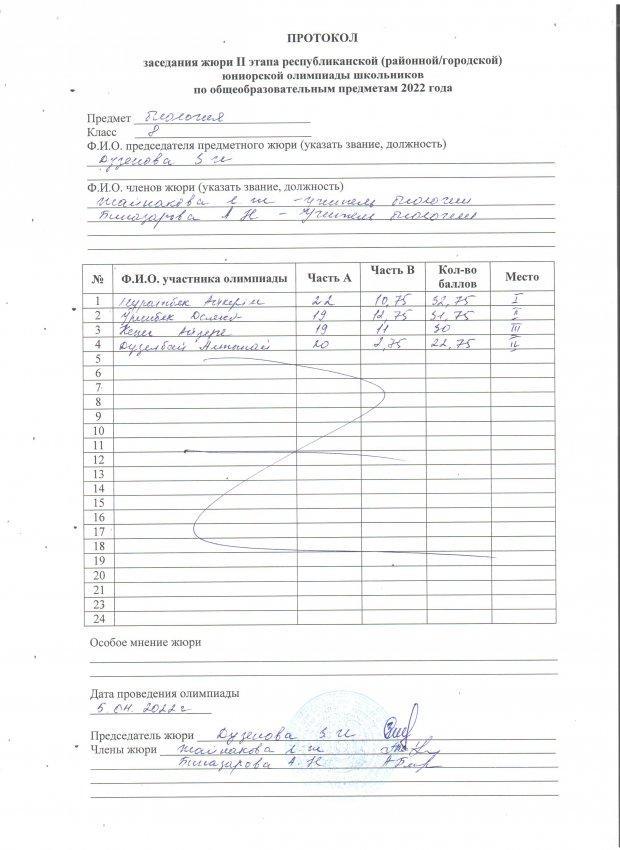 ПРОТОКОЛ
заседания жюри II этапа республиканской (районной/городской)
юниорской олимпиады школьников
по общеобразовательным предметам 2022 года
Предмет Биология
Класс 8
Ф.И.О. председателя предметного жюри (указать звание, должность)
Дузенова З И
Ф.И.О. членов жюри (указать звание, должность)
Жайпакова Л Ж - учитель биологии
А Н - Учитель биологии
№ Ф.И.О. участника олимпиады Часть А Часть В Кол-во баллов Место
1 22 10,75 32,75 I
2 19 12,75 31,75 II
3 19 11 30 III
4 20 2,75 22,75
5
6
7
8
9
10
11
12
13
14
15
16
17
18
19
20
21
23
24
Особое мнение жюри
Дата проведения олимпиады
5.04.2022г
Председатель жюри Дузенова З И
Члены жюри Жайпакова Л Ж
А. Н